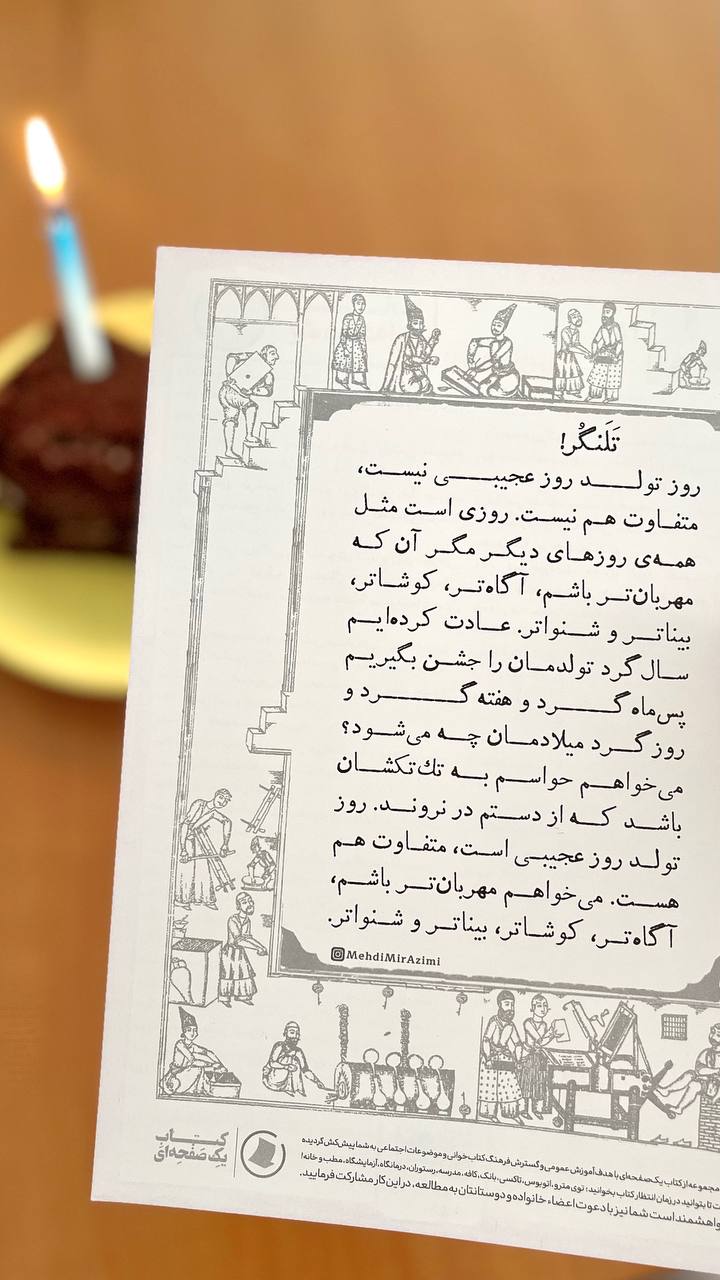 تَلَنگُر!
روز تولد روز عجیبی نیست،
متفاوت هم نیست. روزی است مثل
همه‌ی روزهای دیگر مگر آن که
مهربان‌تر باشم، آگاه‌تر، کوشاتر،
بیناتر و شنواتر. عادت کرده‌ایم
سال‌گرد تولدمان را جشن بگیریم
پس ماه گرد و هفته گرد و
روز گرد میلادمان چه می‌شود؟
می‌خواهم حواسم به تك تکشان
باشد که از دستم در نروند. روز
تولد روز عجیبی است، متفاوت هم
هست. می‌خواهم مهربان‌تر باشم،
آگاه‌تر، کوشاتر، بیناتر و شنواتر.
MehdiMirAzimi
کتاب
یک صَفحِه‌ای
مجموعه از کتاب یک صفحه‌ای با هدف آموزش عمومی و گسترش فرهنگ کتاب‌خوانی و موضوعات اجتماعی به شما پیش‌کش گردیده
تا بتوانید در زمان انتظار کتاب بخوانید؛ توی مترو، اتوبوس، تاکسی، بانک، کافه، مدرسه، رستوران، درمانگاه، آزمایشگاه، مطب و خانه!
است شما نیز با دعوت اعضاء خانواده و دوستانتان به مطالعه، در این کار مشارکت فرمایید.